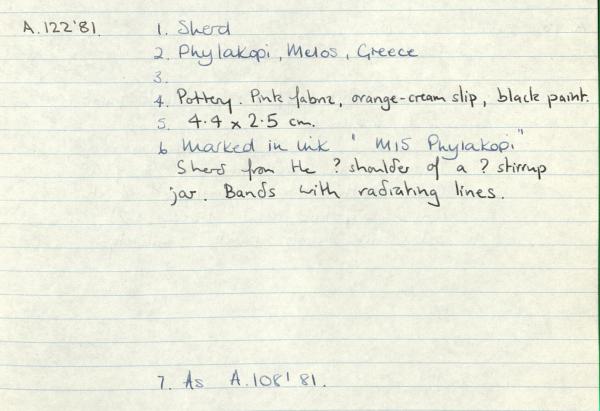 A.122'81. 1. Sherd
2. Phylakopi, Melos, Greece
3.
4. Pottery. Pink fabric, orange-cream slip, black paint.
5. 4.4 x 2.5 cm.
6 Marked in ink "M15 Phylakopi"
Sherd from the ? shoulder of a ? stirrup
jar. Bands with radiating lines.
7. As A.108'81.